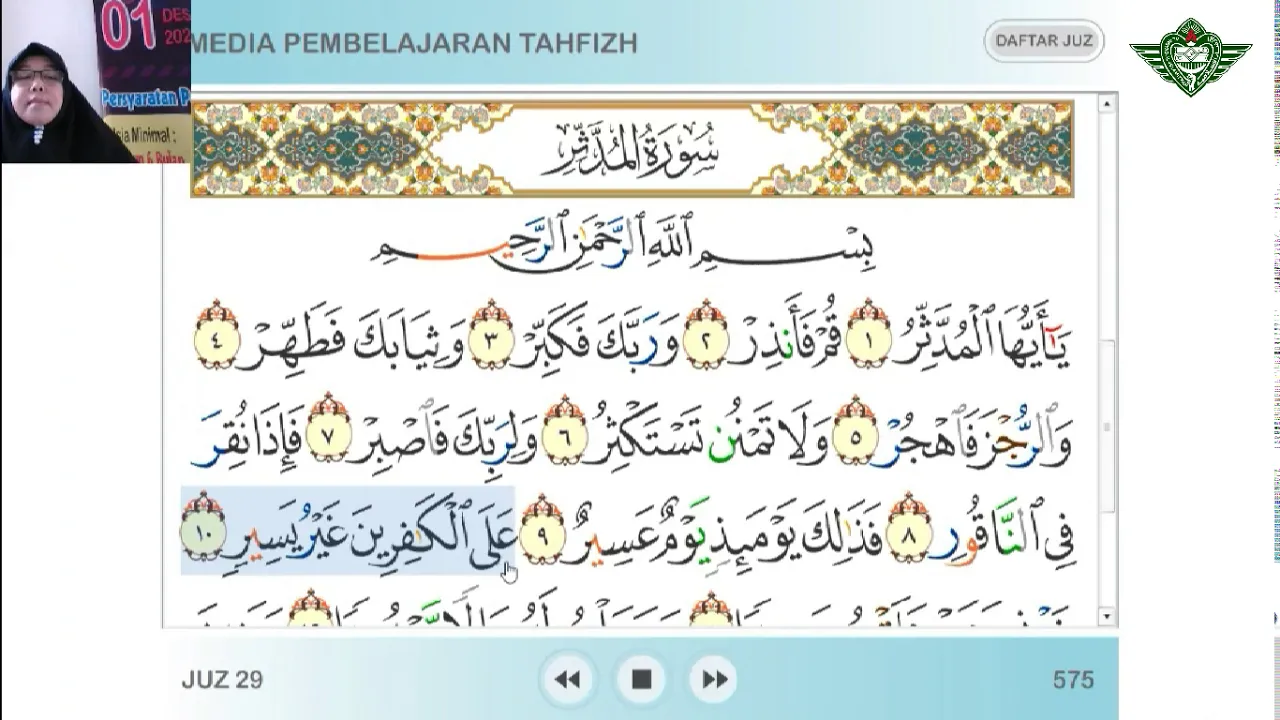 01
DES
202
Persyaratan P
MEDIA PEMBELAJARAN TAHFIZH
DAFTAR JUZ
سُورَةُ المُدَّثِّرِ
بِسْمِ ٱللَّهِ ٱلرَّحْمَٰنِ ٱلرَّحِيمِ
يَٰٓأَيُّهَا ٱلْمُدَّثِّرُ ١ قُمْ فَأَنذِرْ ٢ وَرَبَّكَ فَكَبِّرْ ٣ وَثِيَابَكَ فَطَهِّرْ ٤
وَٱلرُّجْزَ فَٱهْجُرْ ٥ وَلَا تَمْنُن تَسْتَكْثِرُ ٦ وَلِرَبِّكَ فَٱصْبِرْ ٧ فَإِذَا نُقِرَ
فِى ٱلنَّاقُورِ ٨ فَذَٰلِكَ يَوْمَئِذٍ يَوْمٌ عَسِيرٌ ٩ عَلَى ٱلْكَٰفِرِينَ غَيْرُ يَسِيرٍ ١٠
JUZ 29
575